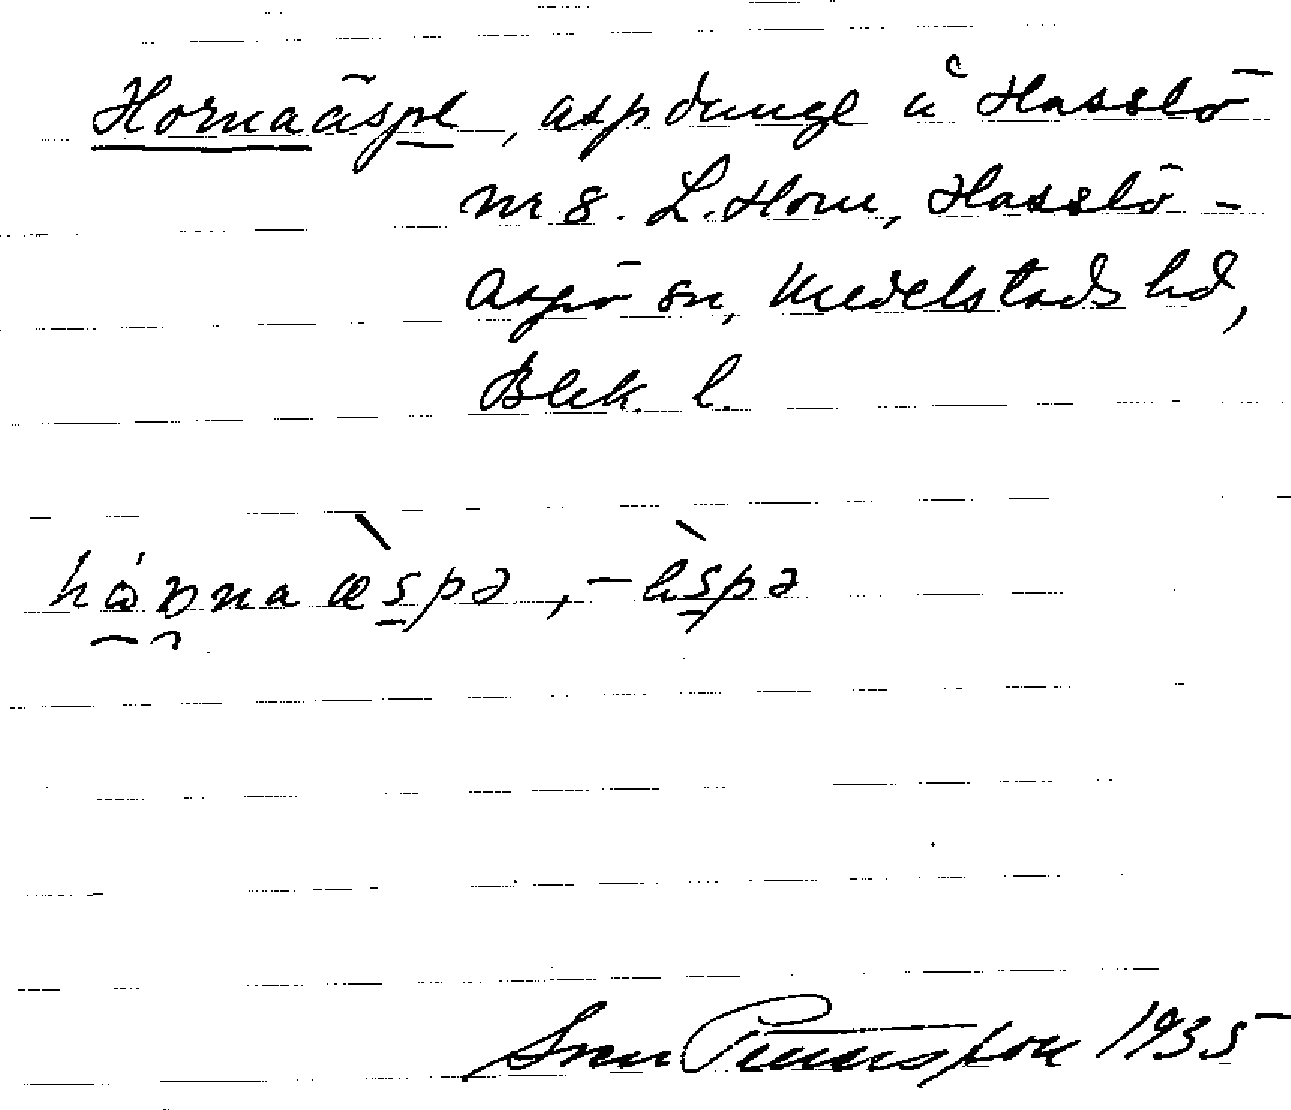 Hornaäspe, aspdunge å Hasslö
nr 8. L. Horn, Hasslö-
Aspö sn, Medelstads hd,
Blek. l.
Sven Pettersson 1935